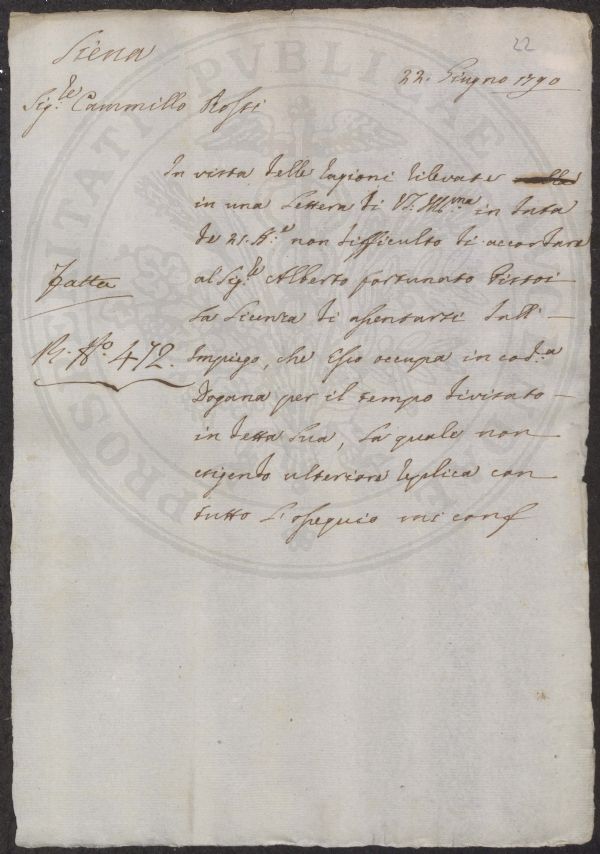 22
Siena
22. Giugno 1790
Sig.re Cammillo Rossi
In vista delle ragioni rilevate
in una Lettera di VS. Ill.ma in data
de 21. st.e non difficulto di accordare
al Sig.re Alberto fortunato Pistoi
fatta
La Licenza di assentarsi dall'
R. No. 472.
Impiego, che Esso occupa in cod.a
Dogana per il tempo divisato
in detta Sua, La quale non
esigendo ulteriore replica con
tutto L'ossequio mi conf
PROSPERITATI PVBLICAE